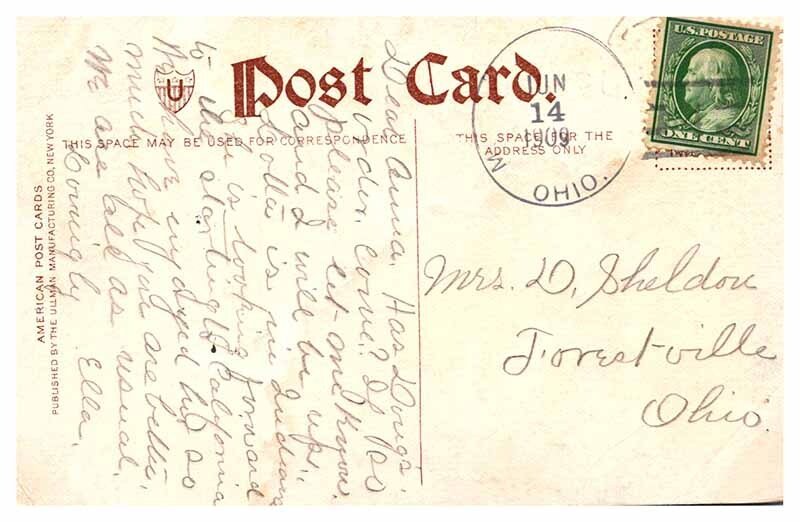 Post Card.
U
THIS SPACE MAY BE USED FOR CORRESPONDENCE
THIS SPACE FOR THE
ADDRESS ONLY
AMERICAN POST CARDS
PUBLISHED BY THE ULLMAN MANUFACTURING CO, NEW YORK
U.S. POSTAGE
ONE CENT
JUN
14
1909
M
OHIO.
Dear Anna. Has Doug's
order come? If so
please let me know
and I will be up.
Lotta is in Indiana
is looking forward
to the starting California
We have enjoyed her so
much hope you are better.
We are all as usual.
Lovingly Ella.
Mrs. D. Sheldon
Forestville
Ohio.